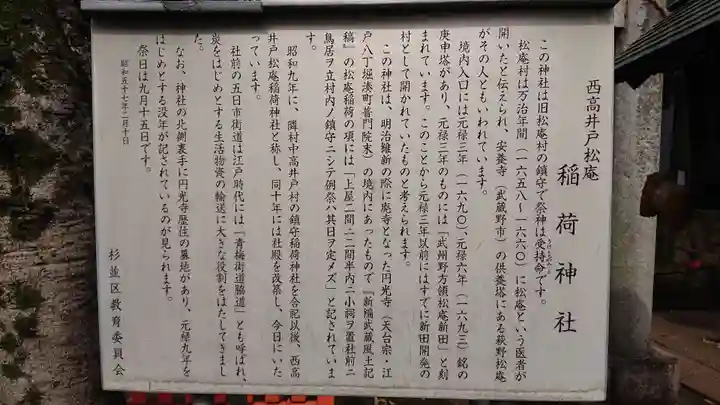 西高井戸松庵
稲荷神社
この神社は旧松庵村の鎮守で祭神は受持命です。
うけもちのみこと
松庵村は万治年間（一六五八〜一六六〇）に松庵という医者が
開いたと伝えられ、安養寺（武蔵野市）の供養塔にある荻野松庵
がその人ともいわれています。
境内入口には元禄三年（一六九〇）、元禄六年（一六九三）銘の
庚申塔があり、元禄三年のものには「武州野方領松庵新田」と刻
まれています。このことから元禄三年以前にはすでに新田開発の
村として開かれていたものと考えられます。
この神社は、明治維新の際に廃寺となった円光寺（天台宗・江
戸八丁堀湊町普門院末）の境内にあったもので『新編武蔵風土記
稿』の松庵稲荷の項には「上屋二間ニ二間半内ニ小祠ヲ置社前ニ
鳥居ヲ立村内ノ鎮守ニシテ例祭ハ其日ヲ定メズ」と記されていま
す。
昭和九年に、隣村中高井戸村の鎮守稲荷神社を合祀以後、西高
井戸松庵稲荷神社と称し、同十年には社殿を改築し、今日にいた
っています。
社前の五日市街道は江戸時代には「青梅街道脇道」とも呼ばれ、
炭をはじめとする生活物資の輸送に大きな役割をはたしてきまし
た。
なお、神社の北側裏手に円光寺歴住の墓地があり、元禄九年を
はじめとする没年が記されているのが見られます。
祭日は九月十五日です。
昭和五十七年二月十日
杉並区教育委員会